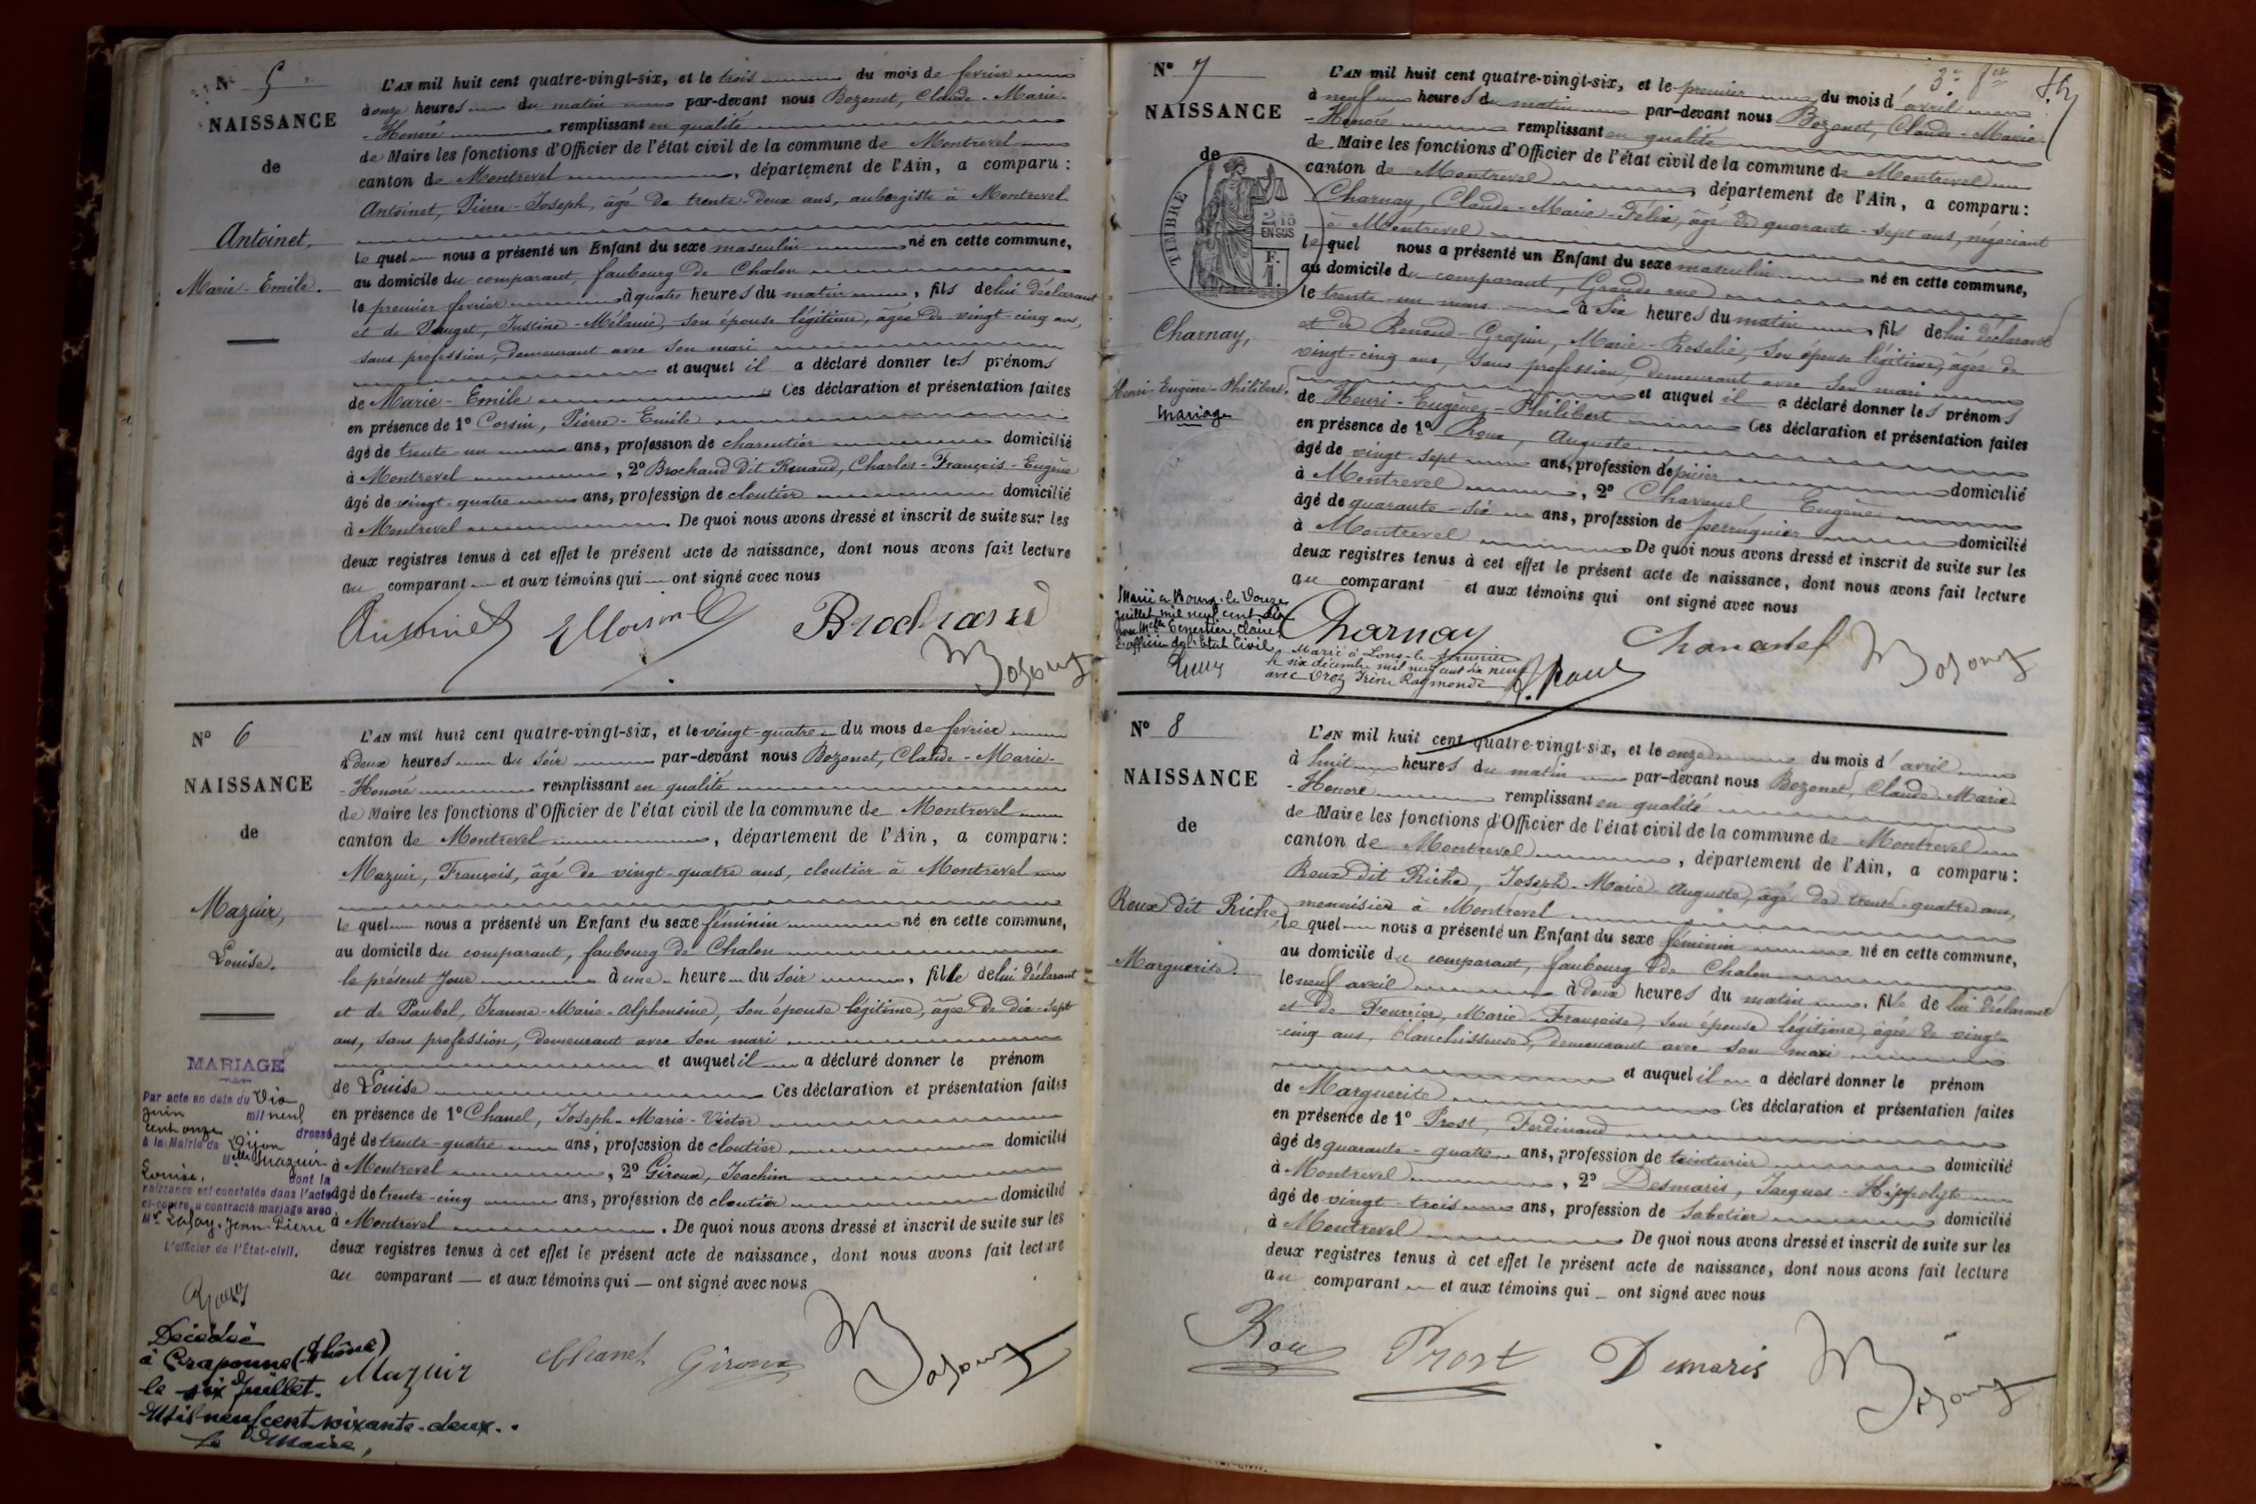 N° 5
NAISSANCE
de
Antoinet,
Marie-Emile.
L'AN mil huit cent quatre-vingt-six, et le trois du mois de fevrier
à onze heures du matin par-devant nous Bozonet, Claude-Marie-
-Honoré remplissant en qualité
de Maire les fonctions d'Officier de l'état civil de la commune de Montrevel
canton de Montrevel, département de l'Ain, a comparu :
Antoinet, Pierre-Joseph, âgé de trente-deux ans, aubergiste à Montrevel
le quel nous a présenté un Enfant du sexe masculin né en cette commune,
au domicile du comparant, faubourg de Chalon
le premier fevrier à quatre heures du matin, fils de lui déclarant
et de Pauget, Justine-Mélanie, son épouse légitime, âgée de vingt-cinq ans,
sans profession, demeurant avec son mari
et auquel il a déclaré donner les prénoms
de Marie-Emile Ces déclaration et présentation faites
en présence de 1° Corsin, Pierre-Emile
âgé de trente-un ans, profession de charcutier domicilié
à Montrevel, 2° Brochand dit Renaud, Charles-François-Eugène
âgé de vingt-quatre ans, profession de cloutier domicilié
à Montrevel De quoi nous avons dressé et inscrit de suite sur les
deux registres tenus à cet effet le présent acte de naissance, dont nous avons fait lecture
au comparant et aux témoins qui ont signé avec nous
Antoinet Brochand
N° 6
NAISSANCE
de
Mazuir,
Louise.
L'AN mil huit cent quatre-vingt-six, et le vingt-quatre du mois de fevrier
à deux heures du soir par-devant nous Bozonet, Claude-Marie-
-Honoré remplissant en qualité
de Maire les fonctions d'Officier de l'état civil de la commune de Montrevel
canton de Montrevel, département de l'Ain, a comparu :
Mazuir, François, âgé de vingt-quatre ans, cloutier à Montrevel
le quel nous a présenté un Enfant du sexe féminin né en cette commune,
au domicile du comparant, faubourg de Chalon
le présent jour à une heure du soir, fille de lui déclarant
et de Paubel, Jeanne-Marie-Alphonsine, son épouse légitime, âgée de dix-sept
ans, sans profession, demeurant avec son mari
et auquel il a déclaré donner le prénom
de Louise Ces déclaration et présentation faites
en présence de 1° Chanel, Joseph-Marie-Victor
âgé de trente-quatre ans, profession de cloutier domicilié
à Montrevel, 2° Giroux, Joachim
âgé de trente-cinq ans, profession de cloutier domicilié
à Montrevel. De quoi nous avons dressé et inscrit de suite sur les
deux registres tenus à cet effet le présent acte de naissance, dont nous avons fait lecture
au comparant et aux témoins qui ont signé avec nous
MARIAGE
Par acte en date du Dix
juin mil neuf
cent onze dressé
à la Mairie de Dijon
Mlle Mazuir
Louise, dont la
naissance est constatée dans l'acte
ci-contre, a contracté mariage avec
Mr Lafay, Jean-Pierre
L'officier de l'État-civil.
Décédée
à Craponne (Rhône)
le six Juillet.
Mil neuf cent soixante-deux.
Le Maire,
Mazuir Chanel Giroux
N° 7
NAISSANCE
de
TIMBRE
2/10 EN SUS
F.
1.
Charnay,
Henri-Eugène-Philibert.
Mariage
L'AN mil huit cent quatre-vingt-six, et le premier du mois d'avril
à neuf heures du matin par-devant nous Bozonet, Claude-Marie-
-Honoré remplissant en qualité
de Maire les fonctions d'Officier de l'état civil de la commune de Montrevel
canton de Montrevel, département de l'Ain, a comparu :
Charnay, Claude-Marie-Félix, âgé de quarante-sept ans, négociant
à Montrevel
le quel nous a présenté un Enfant du sexe masculin né en cette commune,
au domicile du comparant, Grande rue
le trente-un mars à six heures du matin, fils de lui déclarant
et de Renoud-Grapin, Marie-Rosalie, son épouse légitime, âgée de
vingt-cinq ans, sans profession, demeurant avec son mari
et auquel il a déclaré donner les prénoms
de Henri-Eugène-Philibert Ces déclaration et présentation faites
en présence de 1° Roux, Auguste
âgé de vingt-sept ans, profession d'épicier domicilié
à Montrevel, 2° Chavanel, Eugène
âgé de quarante-six ans, profession de perruquier domicilié
à Montrevel De quoi nous avons dressé et inscrit de suite sur les
deux registres tenus à cet effet le présent acte de naissance, dont nous avons fait lecture
au comparant et aux témoins qui ont signé avec nous
Marié à Bourg, le Douze
Juillet mil neuf cent dix
avec Mlle Claire
L'officier de l'Etat Civil
Charnay Chavanel
Marié à Lons-le-Saunier
le six décembre mil neuf cent dix neuf
avec Droz Irène Raymonde
A. Roux
N° 8
NAISSANCE
de
Roux dit Riche,
Marguerite.
L'AN mil huit cent quatre-vingt-six, et le onze du mois d'avril
à huit heures du matin par-devant nous Bozonet, Claude-Marie-
-Honoré remplissant en qualité
de Maire les fonctions d'Officier de l'état civil de la commune de Montrevel
canton de Montrevel, département de l'Ain, a comparu :
Roux dit Riche, Joseph-Marie-Auguste, âgé de trente-quatre ans,
menuisier à Montrevel
le quel nous a présenté un Enfant du sexe féminin né en cette commune,
au domicile du comparant, faubourg de Chalon
le neuf avril à deux heures du matin, fille de lui déclarant
et de Fourrier, Marie-Françoise, son épouse légitime, âgée de vingt-
-cinq ans, blanchisseuse, demeurant avec son mari
et auquel il a déclaré donner le prénom
de Marguerite Ces déclaration et présentation faites
en présence de 1° Prost, Ferdinand
âgé de quarante-quatre ans, profession de teinturier domicilié
à Montrevel, 2° Desmaris, Jacques-Hippolyte
âgé de vingt-trois ans, profession de sabotier domicilié
à Montrevel De quoi nous avons dressé et inscrit de suite sur les
deux registres tenus à cet effet le présent acte de naissance, dont nous avons fait lecture
au comparant et aux témoins qui ont signé avec nous
Roux Prost Demaris